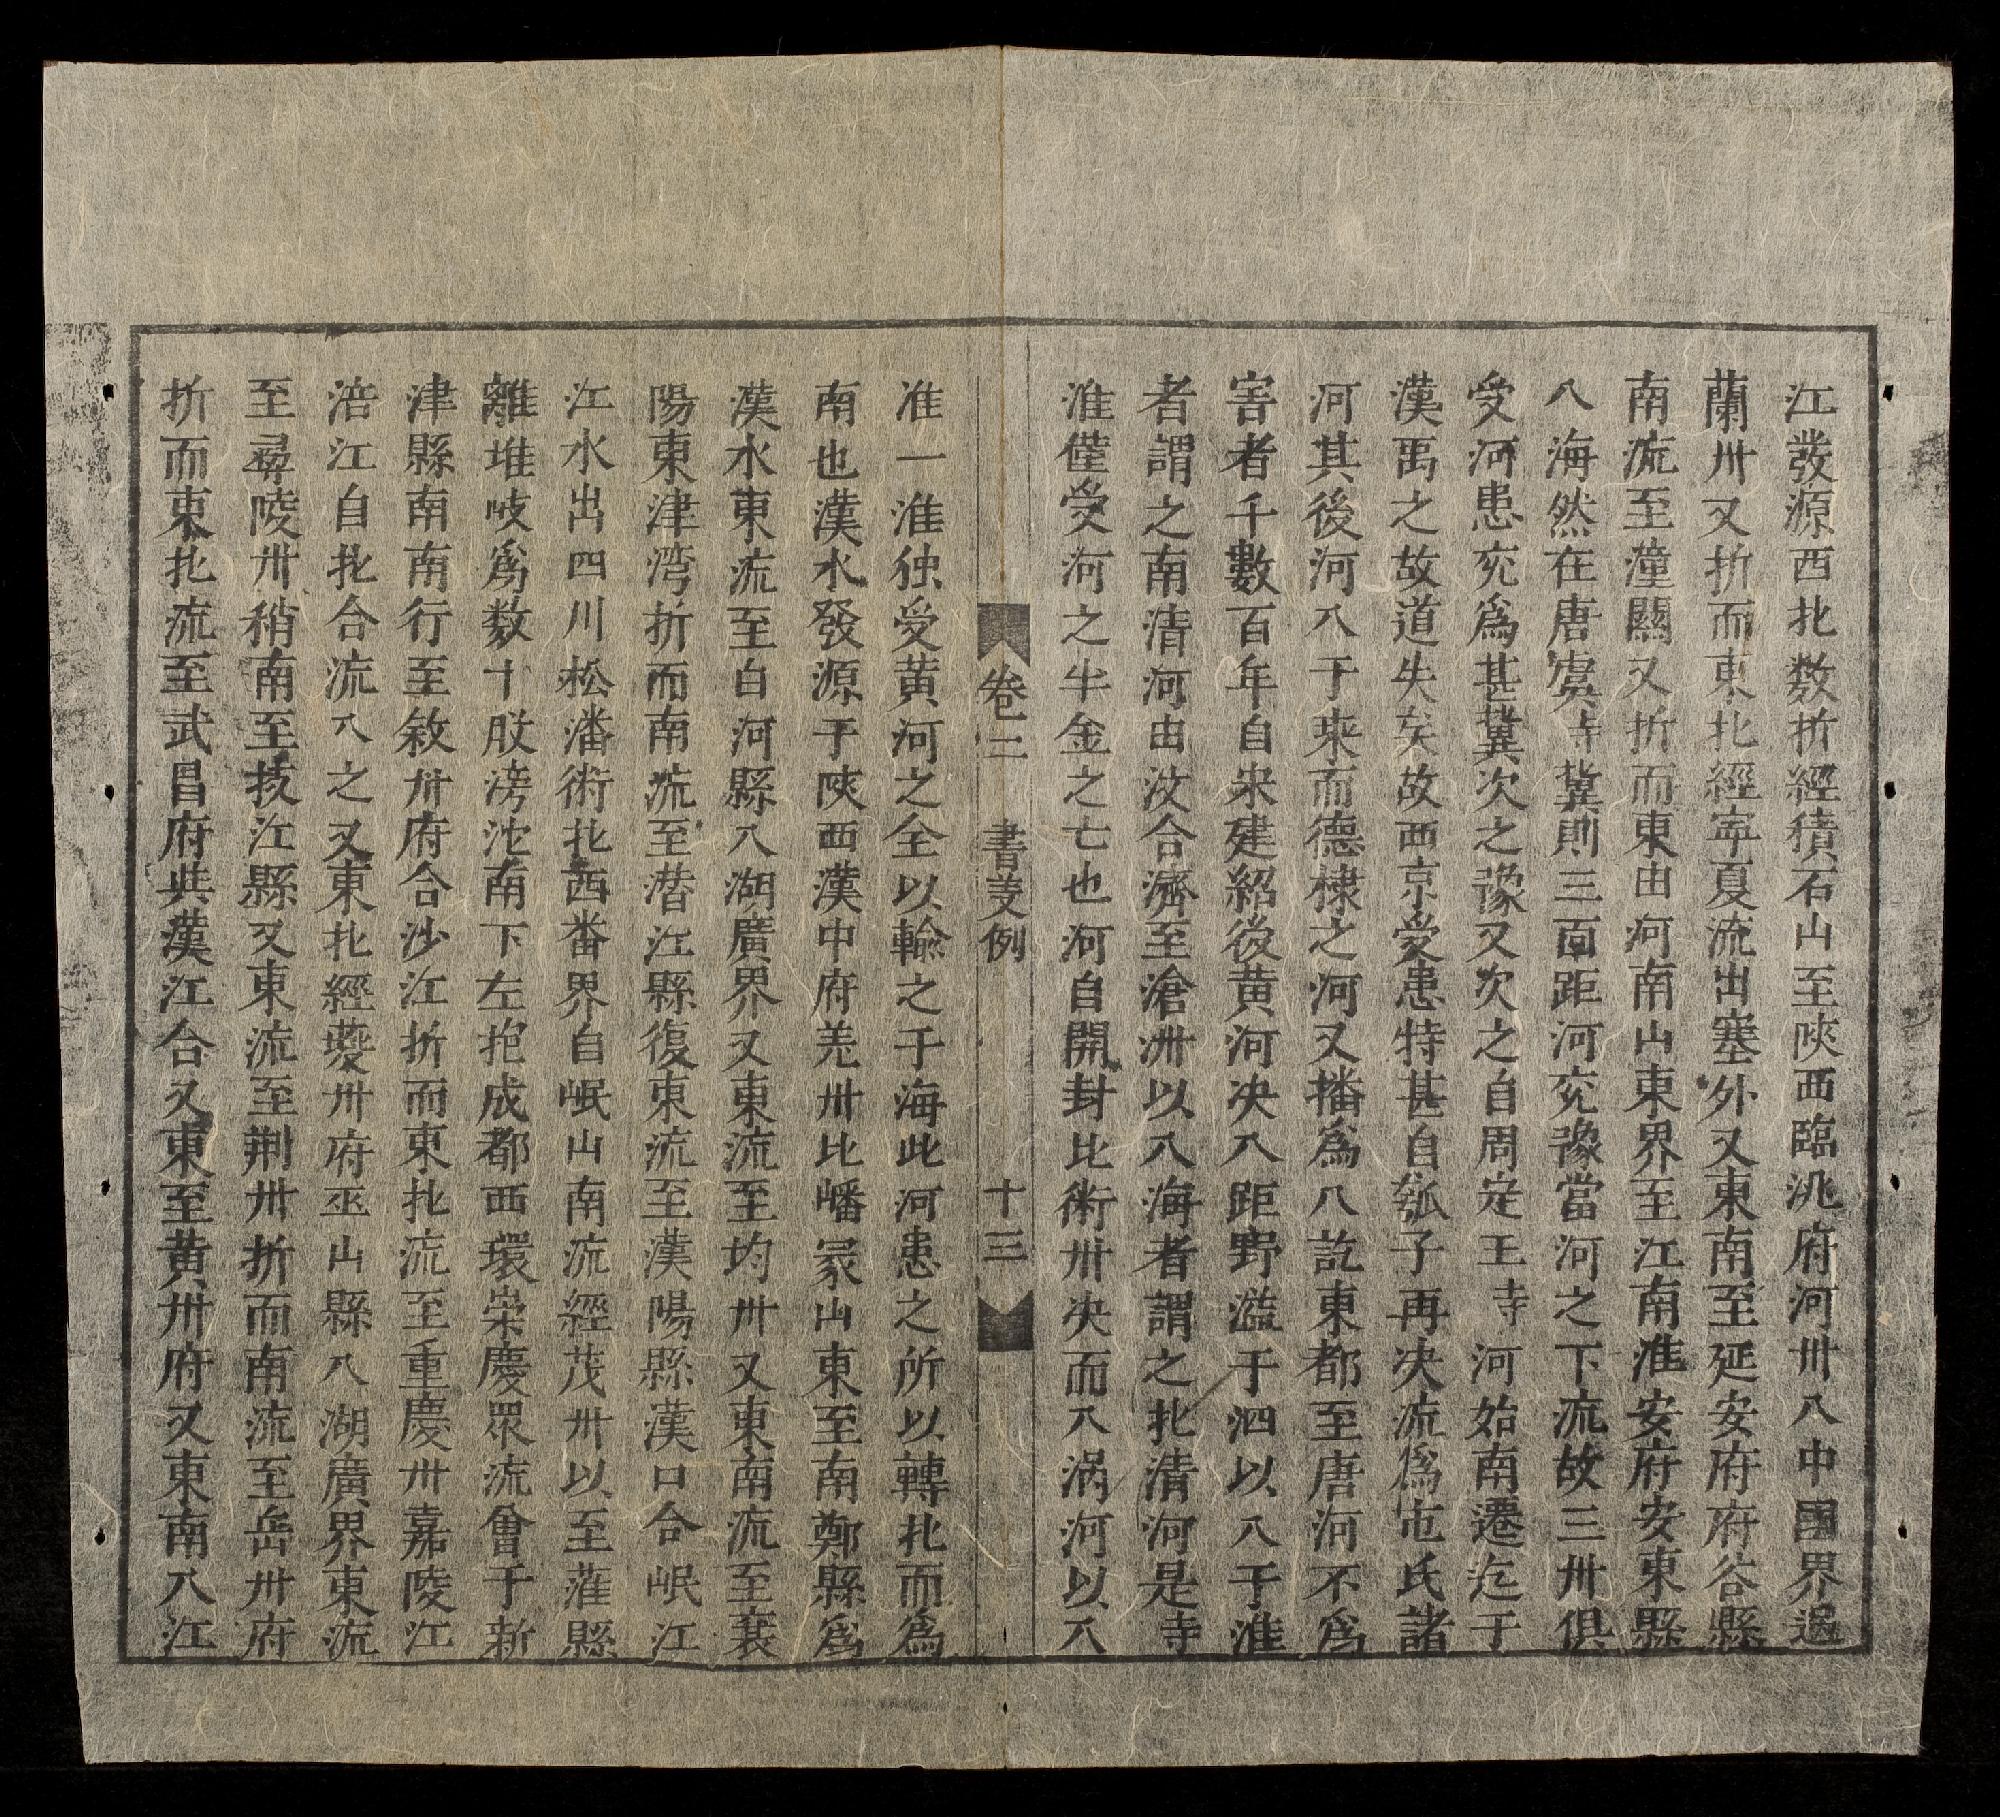 江發源西北数折經積石山至陝西臨洮府河卅入中國界過
蘭卅又折而東北經寧夏流出塞外又東南至延安府府谷縣
南流至潼關又折而東由河南山東界至江南淮安府安東縣
入海然在唐虞寺冀則三面距河兖豫當河之下流故三卅俱
受河患兖爲甚冀次之豫又次之自周定王寺河始南遷迄于
漢禹之故道失矣故西京受患特甚自瓠子再决流爲屯氏諸
河其後河入于来而德棣之河又播爲八訖東都至唐河不爲
害者千數百年自宋建紹後黄河决入距野溢于泗以入于淮
者謂之南清河由汶合濟至滄洲以入海者謂之北清河是寺
淮僅受河之半金之七也河自開封比術卅决而入渦河以入
卷二 書羙例 十三
淮一淮独受黄河之全以輸之于海此河患之所以轉北而爲
南也漢水發源于陝西漢中府羌卅比嶓冢山東至南鄭縣爲
漢水東流至白河縣入湖廣界又東流至均卅又東南流至襄
陽東津湾折而南流至潜江縣復東流至漢陽縣漢口合岷江
江水出四川松潘術北西畨界自岷山南流經茂卅以至灌縣
離堆岐爲数十股滂沱南下左抱成都西環崇慶眾流會于新
津縣南南行至敘卅府合沙江折而東北流至重慶卅嘉陵江
涪江自北合流入之又東北經夔卅府巫山縣入湖廣界東流
至尋陵卅稍南至技江縣又東流至荆卅折而南流至岳卅府
折而東北流至武昌府共漢江合又東至黄卅府又東南入江